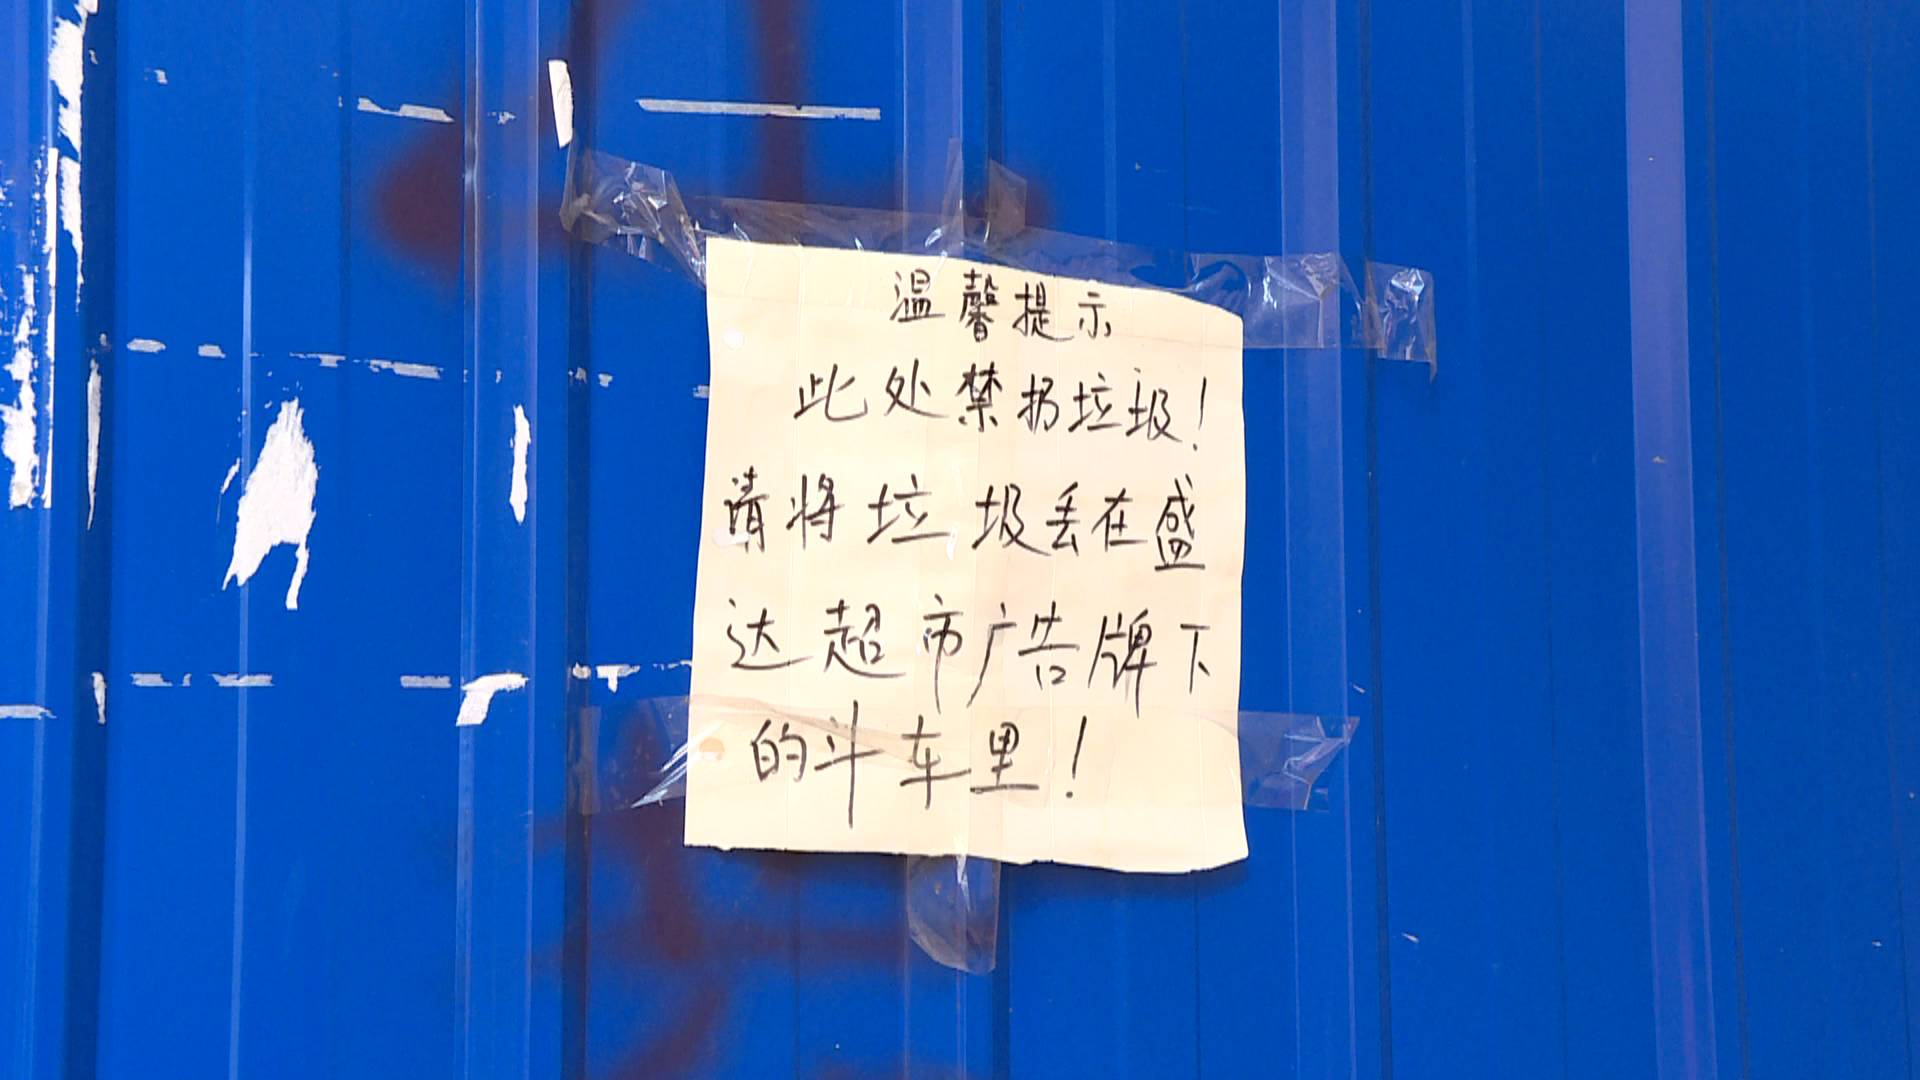 温馨提示
此处禁扔垃圾!
请将垃圾丢在盛
达超市广告牌下
的斗车里!